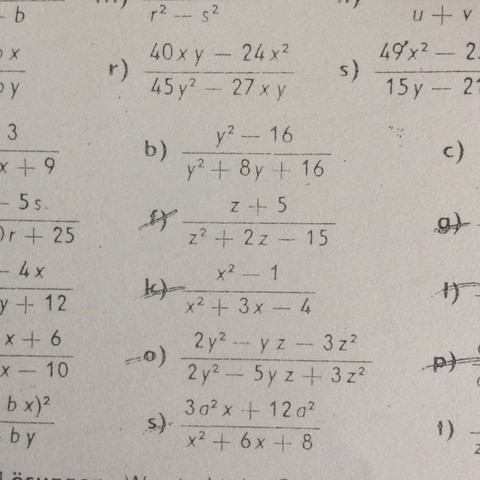 – b
r² – s²
u + v
x
r) (40xy – 24x²)/(45y² – 27xy)
s) 49x² – 2
15y – 21
by
3
x + 9
b) (y² – 16)/(y² + 8y + 16)
c)
– 5s
r + 25
f) (z + 5)/(z² + 2z – 15)
g)
– 4x
y + 12
k) (x² – 1)/(x² + 3x – 4)
l)
x + 6
x – 10
o) (2y² – yz – 3z²)/(2y² – 5yz + 3z²)
p)
bx)²
by
s) (3a²x + 12a²)/(x² + 6x + 8)
t)